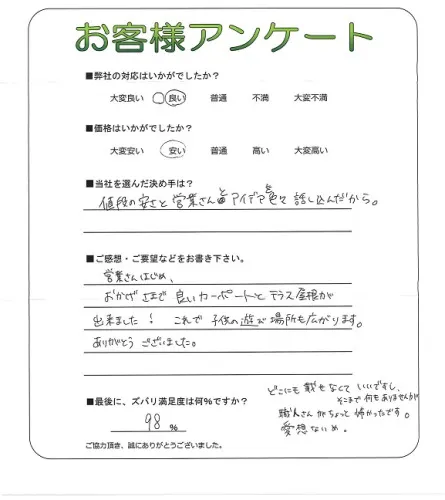 お客様アンケート
■弊社の対応はいかがでしたか？
大変良い 良い 普通 不満 大変不満
■価格はいかがでしたか？
大変安い 安い 普通 高い 大変高い
■当社を選んだ決め手は？
値段の安さと営業さんとアイデア色々話し込んだから。
■ご感想・ご要望などをお書き下さい。
営業さんはじめ、
おかげさまで良いカーポートとテラス屋根が
出来ました！これで子供の遊ぶ場所も広がります。
ありがとうございました。
どこにも載せなくていいですし、
そこまで何もありませんが
職人さんがちょっと怖かったです。
愛想ないめ。
■最後に、ズバリ満足度は何%ですか？
98 %
ご協力頂き、誠にありがとうございました。